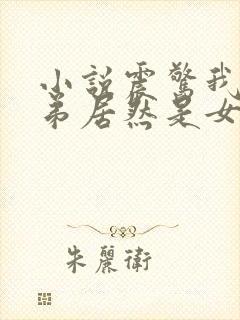 小說震驚我
弟居然是女
朱麗衛